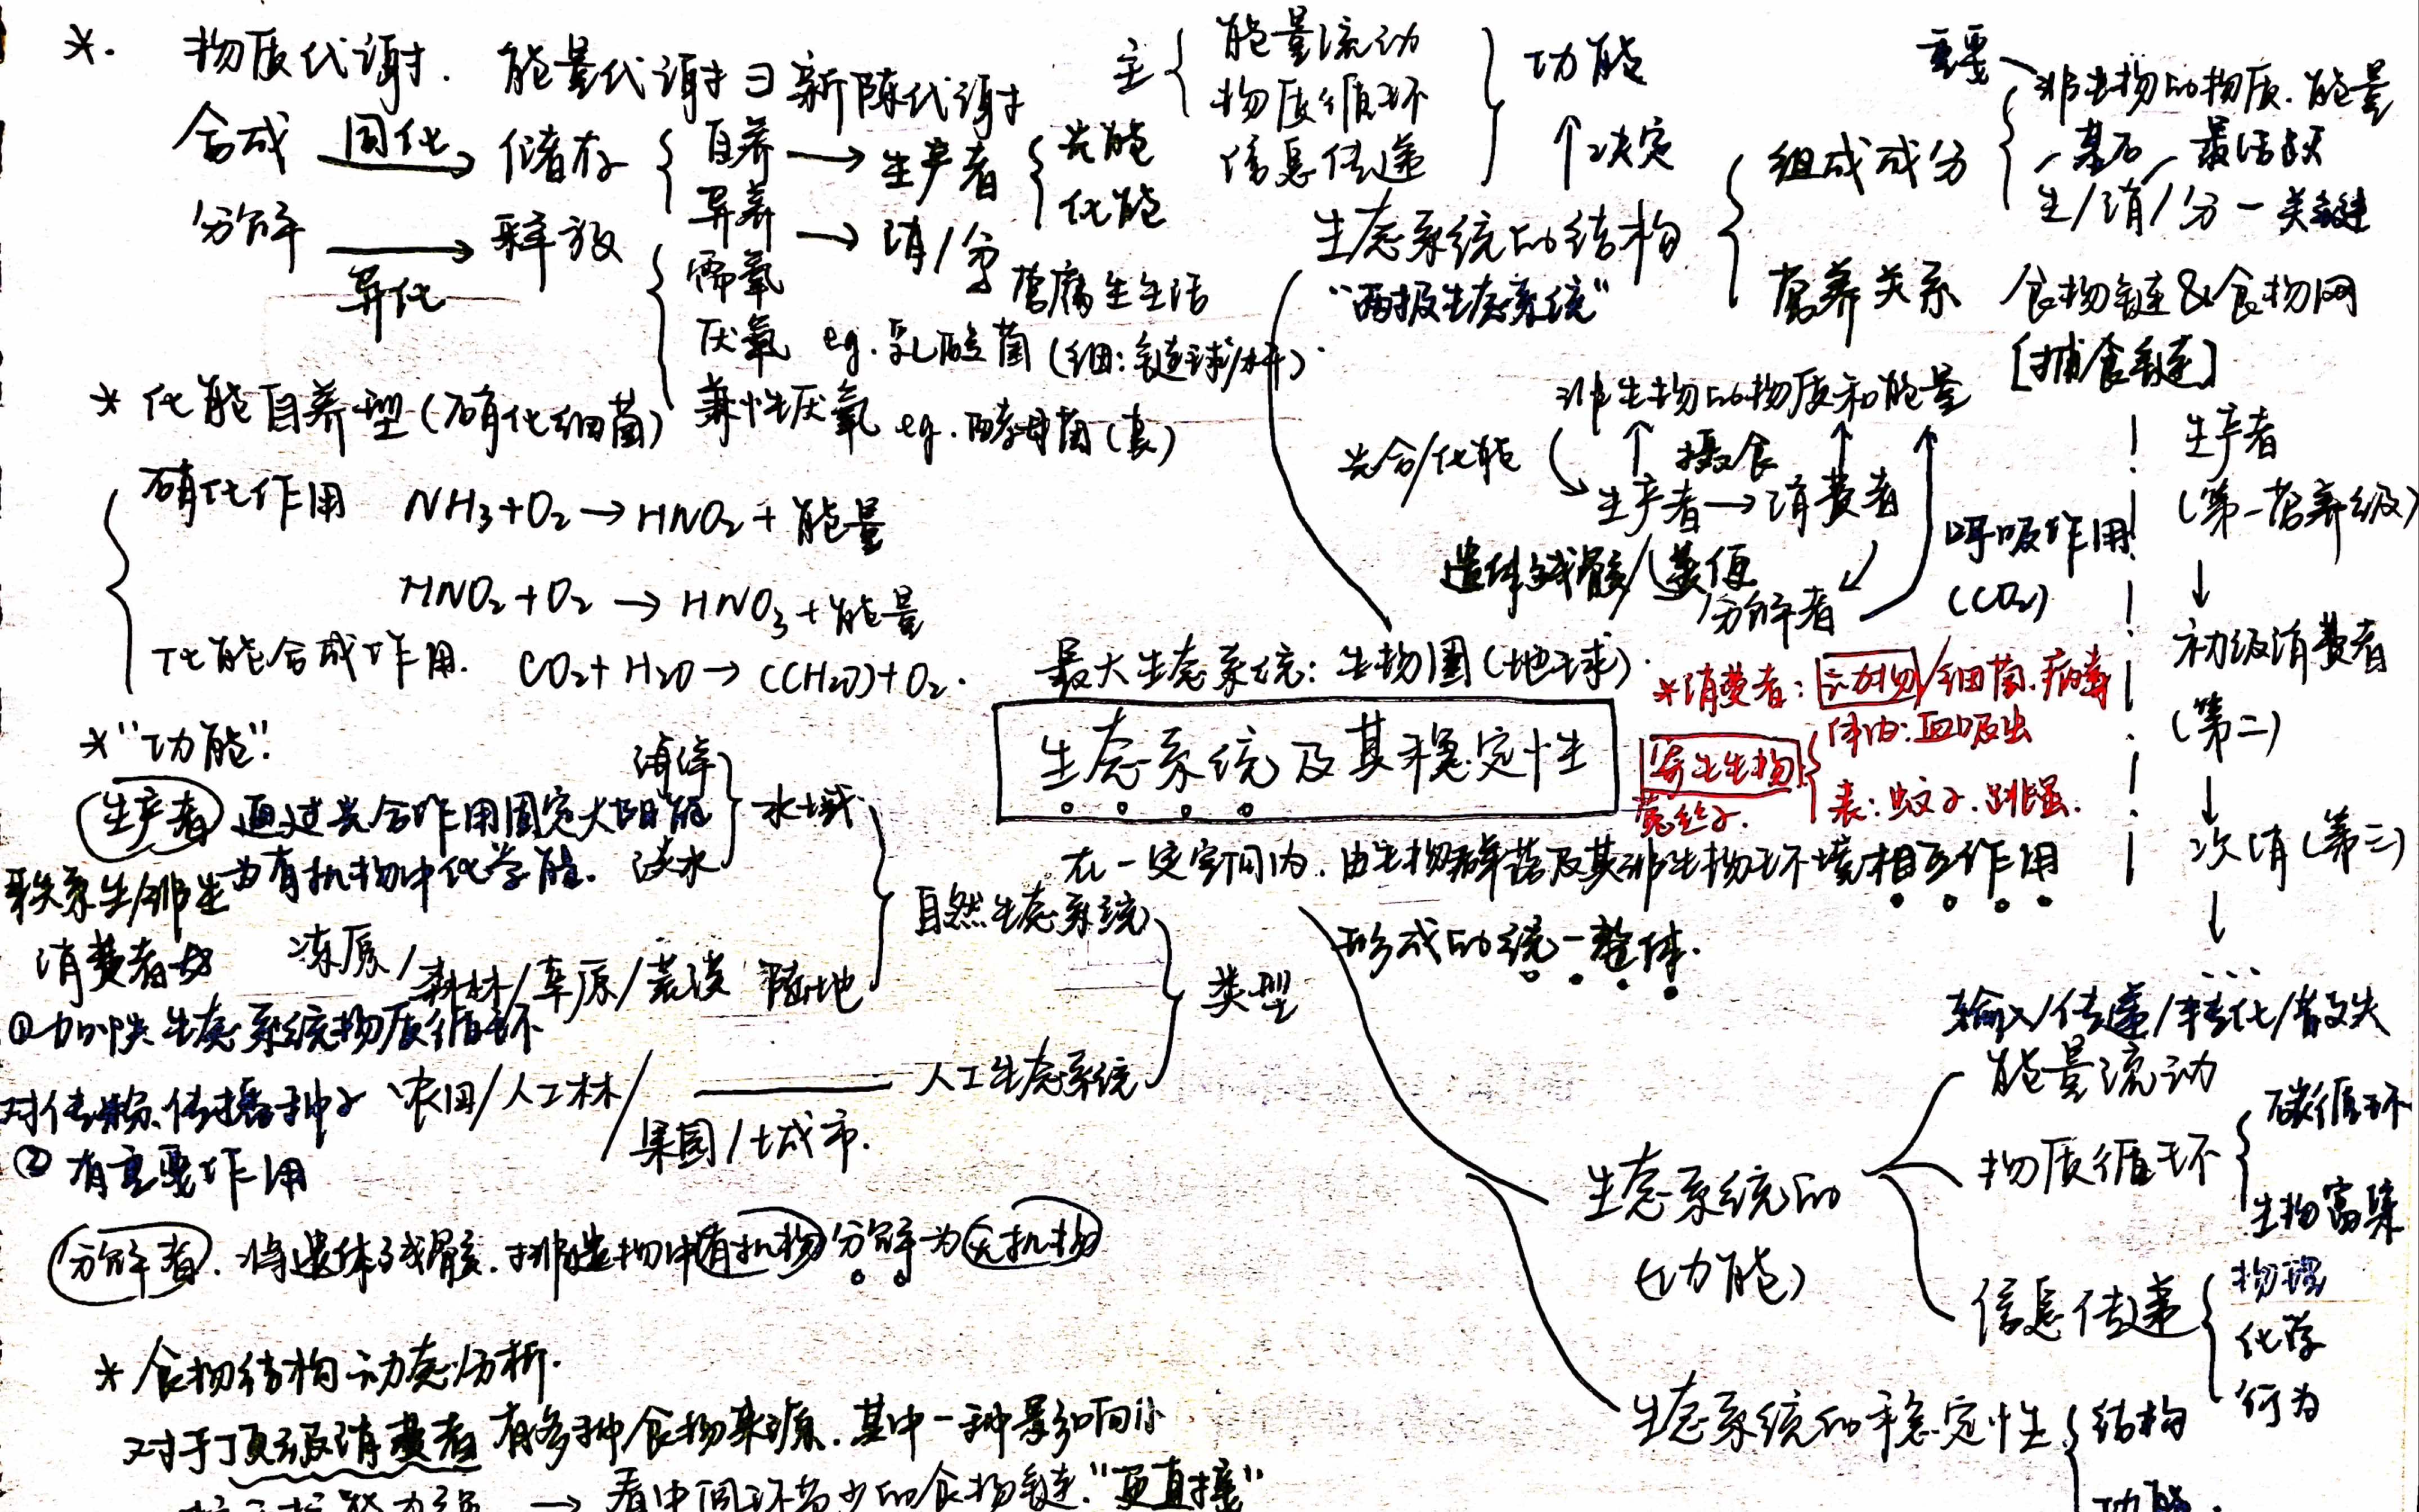 *. 物质代谢. 能量代谢 ∃ 新陈代谢
合成 同化→ 储存 { 自养 → 生产者 { 光能 化能
异养 → 消/分 营腐生生活
分解 →异化 释放 { 需氧
厌氧 eg. 乳酸菌 (细: 链球/杆).
兼性厌氧 eg. 酵母菌 (真)
* 化能自养型 (硝化细菌)
硝化作用 NH₃+O₂→HNO₂+能量
HNO₂+O₂→HNO₃+能量
化能合成作用. CO₂+H₂O→(CH₂O)+O₂.
主 { 能量流动
物质循环
信息传递
} 功能
↑决定
生态系统的结构
“两极生态系统”
组成成分
重要
非生物的物质. 能量
基石 最活跃
生/消/分 - 关键
营养关系 食物链&食物网
[捕食链]
非生物的物质和能量
光合/化能 ↑ 摄食 ↑
生产者→消费者
遗体残骸/粪便
分解者
呼吸作用
(CO₂)
生产者
(第一营养级)
↓
初级消费者
(第二)
↓
次消 (第三)
↓
...
最大生态系统: 生物圈 (地球).
生态系统及其稳定性
在一定空间内. 由生物群落及其非生物环境相互作用
形成的统一整体.
*消费者: 动物/细菌. 病毒
寄生生物 { 体内: 血吸虫
表: 蚊子. 跳蚤.
菟丝子.
*“功能”.
生产者 通过光合作用固定太阳能
为有机物中化学能.
消费者
①加快生态系统物质循环
对传粉. 传播种子
② 有重要作用
分解者. 将遗体残骸. 排遗物中有机物分解为无机物
海洋
淡水
} 水域
冻原/森林/草原/荒漠 陆地
自然生态系统
农田/人工林/
果园/城市.
—— 人工生态系统
类型
输入/传递/转化/散失
生态系统的
(功能)
能量流动
物质循环 { 碳循环
生物富集
信息传递 { 物理
化学
行为
生态系统的稳定性 { 结构
功能.
* 食物结构动态分析.
对于顶级消费者 有多种食物来源. 其中一种影响小
→ 看中间环节少的食物链. “更直接”